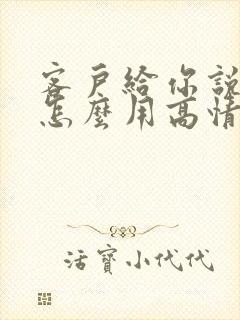 客戶給你說
怎麼用高情
活寶小代代